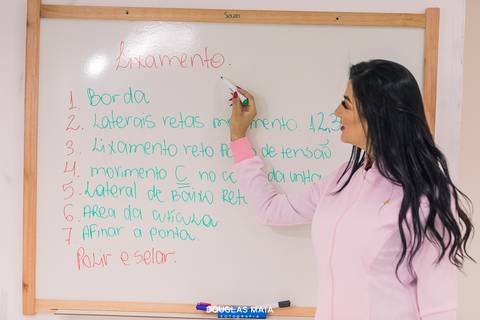 Souza
Lixamento.
1. Borda
2. Laterais retas 1,2,3
3. Lixamento reto de tensão
4 movimento C no da unha
5. Lateral de Baixo Ret
6. Area da cutícula
7 Afinar a ponta.
Polir e selar.
DOUGLAS MAIA
FOTOGRAFIA